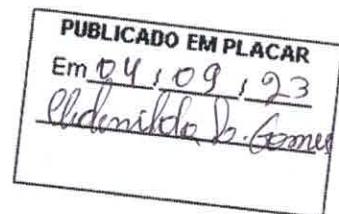 PUBLICADO EM PLACAR
Em 04 / 09 / 23
Cledenilda B. Gomes